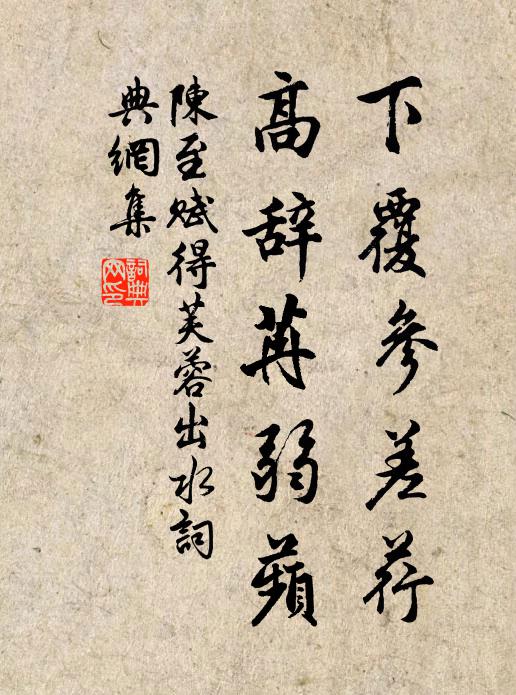 下覆參差荇
高辞苒弱蘋
陳至賦得芙蓉出水詞
典網集
詞典網印